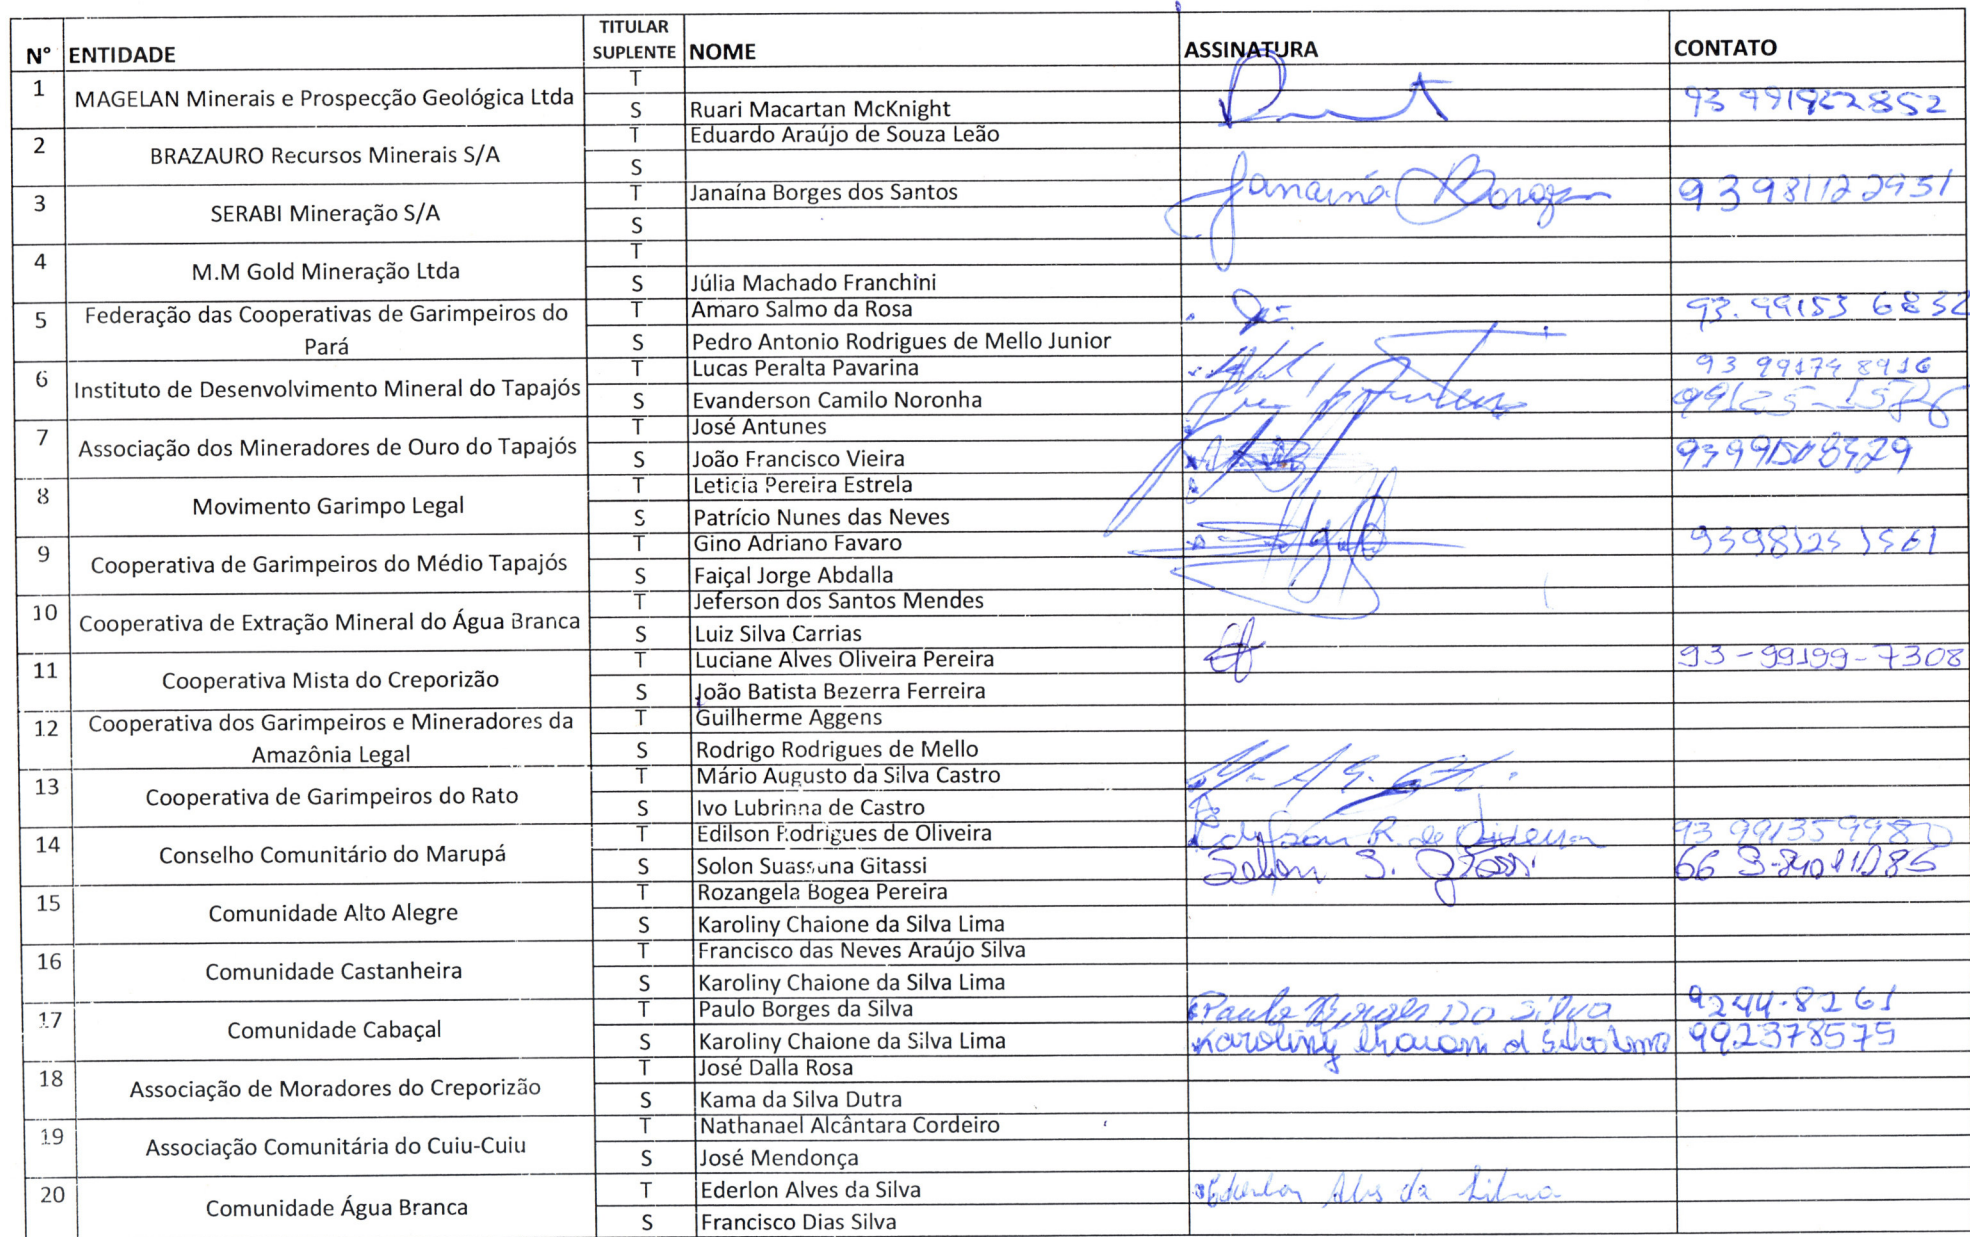 N° ENTIDADE TITULAR SUPLENTE NOME ASSINATURA CONTATO
1 MAGELAN Minerais e Prospecção Geológica Ltda T
S Ruari Macartan McKnight 93 991922852
2 BRAZAURO Recursos Minerais S/A T Eduardo Araújo de Souza Leão
S
3 SERABI Mineração S/A T Janaína Borges dos Santos Janaina Borges 93981122951
S
4 M.M Gold Mineração Ltda T
S Júlia Machado Franchini
5 Federação das Cooperativas de Garimpeiros do Pará T Amaro Salmo da Rosa 93. 99153 6832
S Pedro Antonio Rodrigues de Mello Junior
6 Instituto de Desenvolvimento Mineral do Tapajós T Lucas Peralta Pavarina 93 991748916
S Evanderson Camilo Noronha
7 Associação dos Mineradores de Ouro do Tapajós T José Antunes
S João Francisco Vieira
8 Movimento Garimpo Legal T Leticia Pereira Estrela
S Patrício Nunes das Neves
9 Cooperativa de Garimpeiros do Médio Tapajós T Gino Adriano Favaro
S Faiçal Jorge Abdalla
10 Cooperativa de Extração Mineral do Água Branca T Jeferson dos Santos Mendes
S Luiz Silva Carrias
11 Cooperativa Mista do Creporizão T Luciane Alves Oliveira Pereira 93-99199-7308
S João Batista Bezerra Ferreira
12 Cooperativa dos Garimpeiros e Mineradores da Amazônia Legal T Guilherme Aggens
S Rodrigo Rodrigues de Mello
13 Cooperativa de Garimpeiros do Rato T Mário Augusto da Silva Castro
S Ivo Lubrinna de Castro
14 Conselho Comunitário do Marupá T Edilson Rodrigues de Oliveira 93 991359980
S Solon Suassuna Gitassi Solon S.
15 Comunidade Alto Alegre T Rozangela Bogea Pereira
S Karoliny Chaione da Silva Lima
16 Comunidade Castanheira T Francisco das Neves Araújo Silva
S Karoliny Chaione da Silva Lima
17 Comunidade Cabaçal T Paulo Borges da Silva Paulo Borges Da Silva 9244-8261
S Karoliny Chaione da Silva Lima Karoliny 992378575
18 Associação de Moradores do Creporizão T José Dalla Rosa
S Kama da Silva Dutra
19 Associação Comunitária do Cuiu-Cuiu T Nathanael Alcântara Cordeiro
S José Mendonça
20 Comunidade Água Branca T Ederlon Alves da Silva Ederlon Alves da Silva
S Francisco Dias Silva